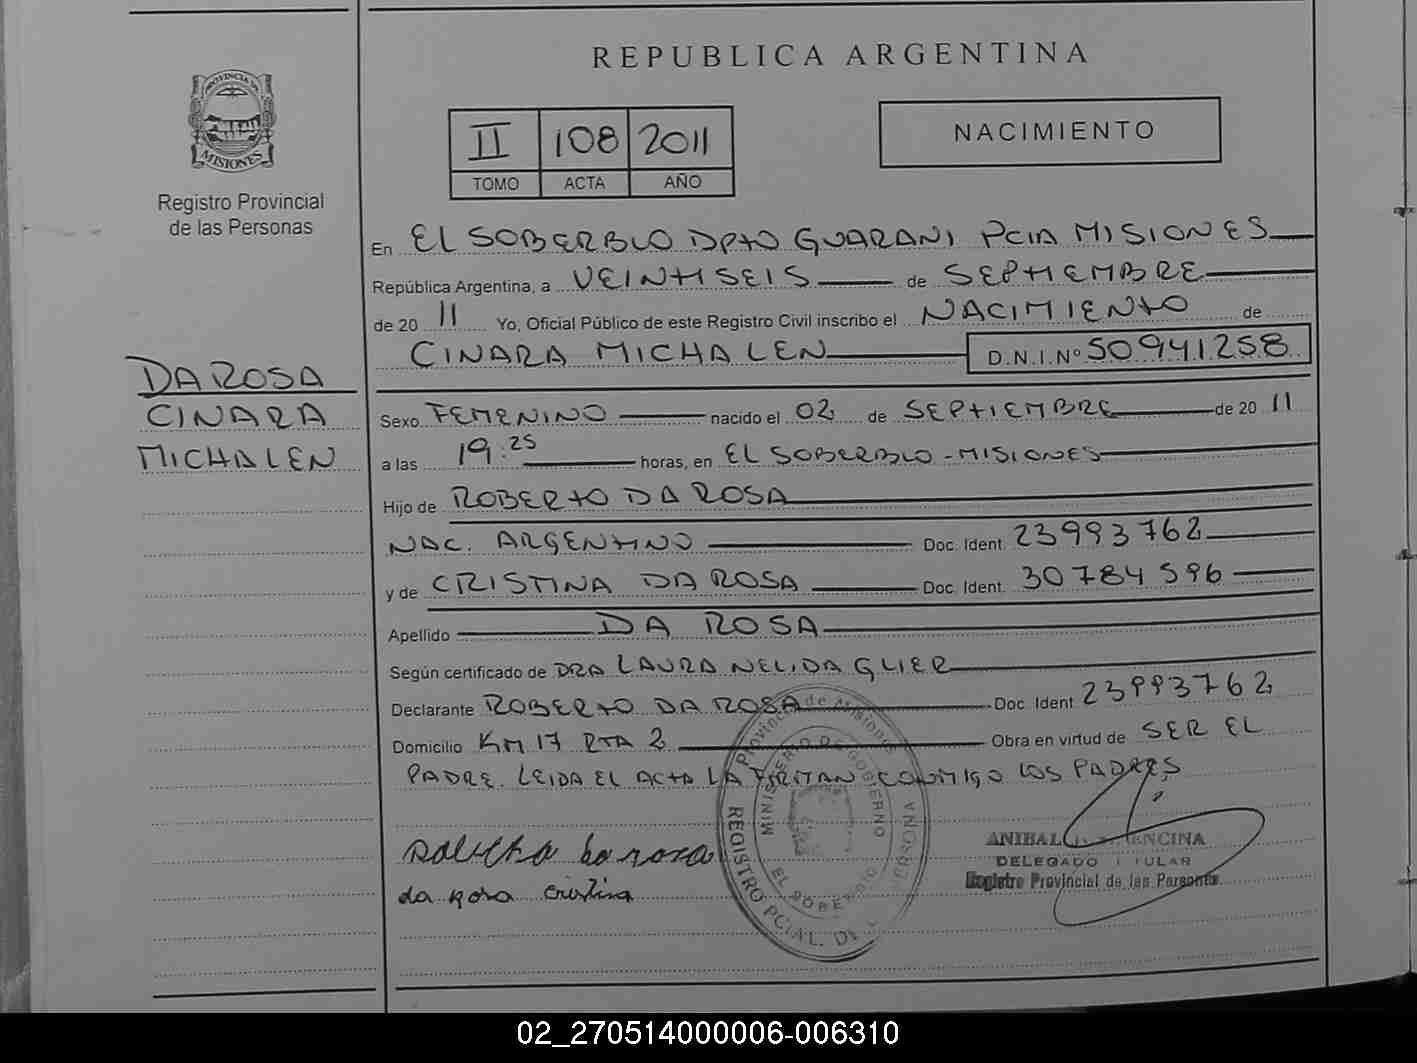 PROVINCIA DE
MISIONES
Registro Provincial
de las Personas
DA ROSA
CINARA
MICHALEN
REPUBLICA ARGENTINA
II 108 2011
TOMO ACTA AÑO
NACIMIENTO
En EL SOBERBIO DPTO GUARANI PCIA MISIONES
República Argentina, a VEINTISEIS de SEPTIEMBRE
de 20 11 Yo, Oficial Público de este Registro Civil inscribo el NACIMIENTO de
CINARA MICHALEN D.N.I.Nº 50941258
Sexo FEMENINO nacido el 02 de SEPTIEMBRE de 20 11
a las 19:25 horas, en EL SOBERBIO - MISIONES
Hijo de ROBERTO DA ROSA
NAC. ARGENTINO Doc. Ident 23993762
y de CRISTINA DA ROSA Doc. Ident. 30784596
Apellido DA ROSA
Según certificado de DRA LAURA NELIDA GLIER
Declarante ROBERTO DA ROSA Doc Ident 23993762
Domicilio KM 17 RTA 2 Obra en virtud de SER EL
PADRE. LEIDA EL ACTA LA FIRMAN CONMIGO LOS PADRES
da rosa cristina
Provincia de Misiones
MINISTERIO DE GOBIERNO
EL SOBERBIO
REGISTRO PCIAL. DE
ANIBAL
DELEGADO TITULAR
Registro Provincial de las Personas
02_270514000006-006310